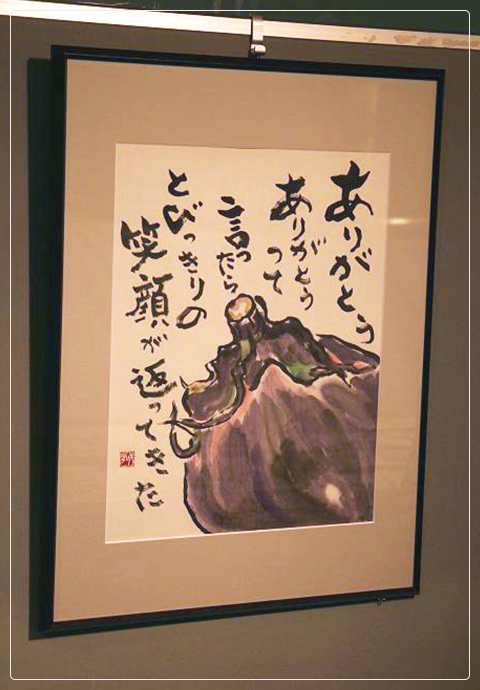 ありがとう
ありがとう
って
言ったら
とびっきりの
笑顔が返ってきた